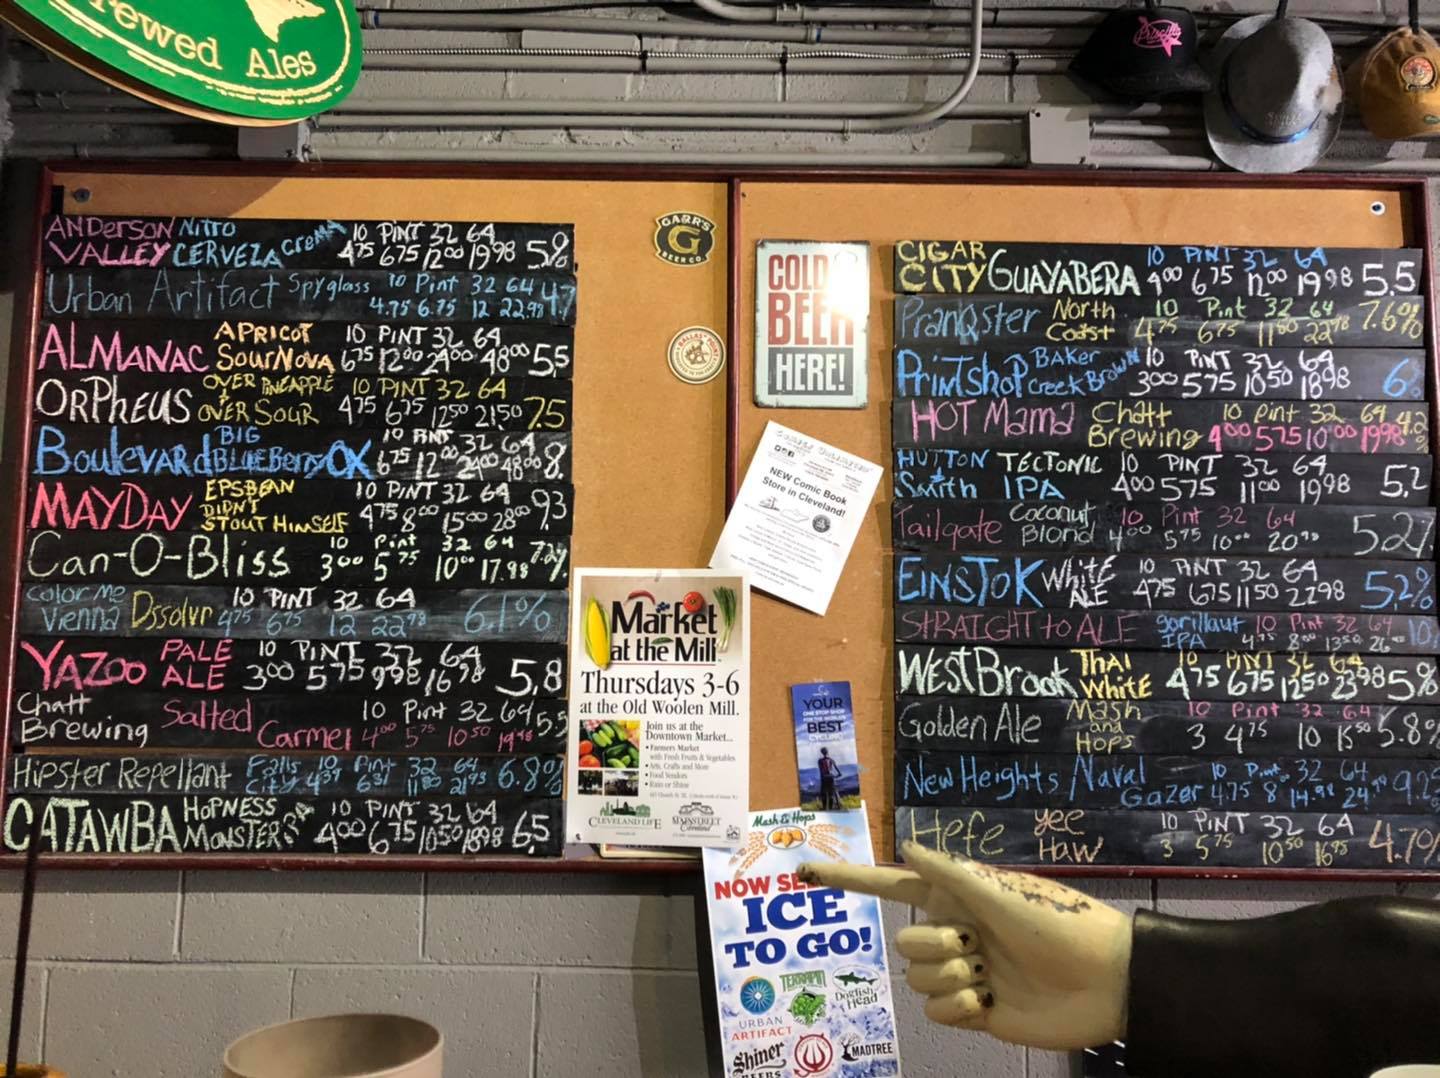 rewed Ales
ANDERSON VALLEY NITRO CERVEZA CREMA 10 PINT 32 64 4.75 6.75 12.00 19.98 5%
Urban Artifact Spyglass 10 Pint 32 64 4.75 6.75 12 22.98 4.7
ALMANAC APRICOT SOURNOVA 10 PINT 32 64 6.75 12.00 24.00 48.00 5.5
ORPHEUS OVER PINEAPPLE + OVER SOUR 10 PINT 32 64 4.75 6.75 12.50 21.50 7.5
Boulevard BIG BLUEBERRY OX 10 PINT 32 64 6.75 12.00 24.00 48.00 8.
MAYDAY EPSBEAN DIDN'T STOUT HIMSELF 10 PINT 32 64 4.75 8.00 15.00 28.00 9.3
Can-O-Bliss 10 Pint 32 64 3.00 5.75 10.00 17.98 7.2%
Color me Vienna Dssolvr 10 PINT 32 64 4.75 6.75 12 22.98 6.1%
YAZOO PALE ALE 10 PINT 32 64 3.00 5.75 9.98 16.98 5.8
Chatt Brewing Salted Carmel 10 Pint 32 64 4.00 5.75 10.50 19.98 5.5
Hipster Repellant Falls City 10 Pint 32 64 4.39 6.31 11.35 21.93 6.8%
CATAWBA HOPNESS MONSTER IPA 10 PINT 32 64 4.00 6.75 10.50 18.98 6.5
GARR'S
G
BEER CO.
COLD
BEER
HERE!
NEW Comic Book
Store in Cleveland!
Market
at the Mill
Thursdays 3-6
at the Old Woolen Mill.
Join us at the
Downtown Market...
• Farmers Market
with Fresh Fruits & Vegetables
• Arts, Crafts and More
• Food Vendors
• Rain or Shine
CLEVELAND LIFE
MAINSTREET
Cleveland
YOUR
ONE STOP SHOP
FOR THE WORLD'S
BEST
CYCLING
Mash & Hops
NOW SE
ICE
TO GO!
URBAN
ARTIFACT
TERRAPIN
Dogfish
Head
Shiner
BEERS
MADTREE
CIGAR CITY GUAYABERA 10 PINT 32 64 4.00 6.75 12.00 19.98 5.5
PranQster North Coast 10 Pint 32 64 4.75 6.75 11.80 22.98 7.6%
Printshop BAKER Creek Brown 10 PINT 32 64 3.00 5.75 10.50 18.98 6%
HOT Mama Chatt Brewing 10 Pint 32 64 4.00 5.75 10.00 19.98 4.2%
HUTTON Smith TECTONIC IPA 10 PINT 32 64 4.00 5.75 11.00 19.98 5.2
Tailgate Coconut Blond 10 Pint 32 64 4.00 5.75 10.00 20.98 5.2%
EINSTOK WHITE ALE 10 PINT 32 64 4.75 6.75 11.50 22.98 5.2%
STRAIGHT to ALE gorillaut IPA 10 Pint 32 64 4.75 8.00 13.50 26 10.
WESTBrook THAI WHITE 10 PINT 32 64 4.75 6.75 12.50 23.98 5%
Golden Ale Mash and Hops 10 Pint 32 64 3 4.75 10 15.50 5.8%
New Heights Naval Gazer 10 Pint 32 64 4.75 8 14.98 24 9.2%
Hefe yee Haw 10 PINT 32 64 3 5.75 10.50 16.95 4.7%